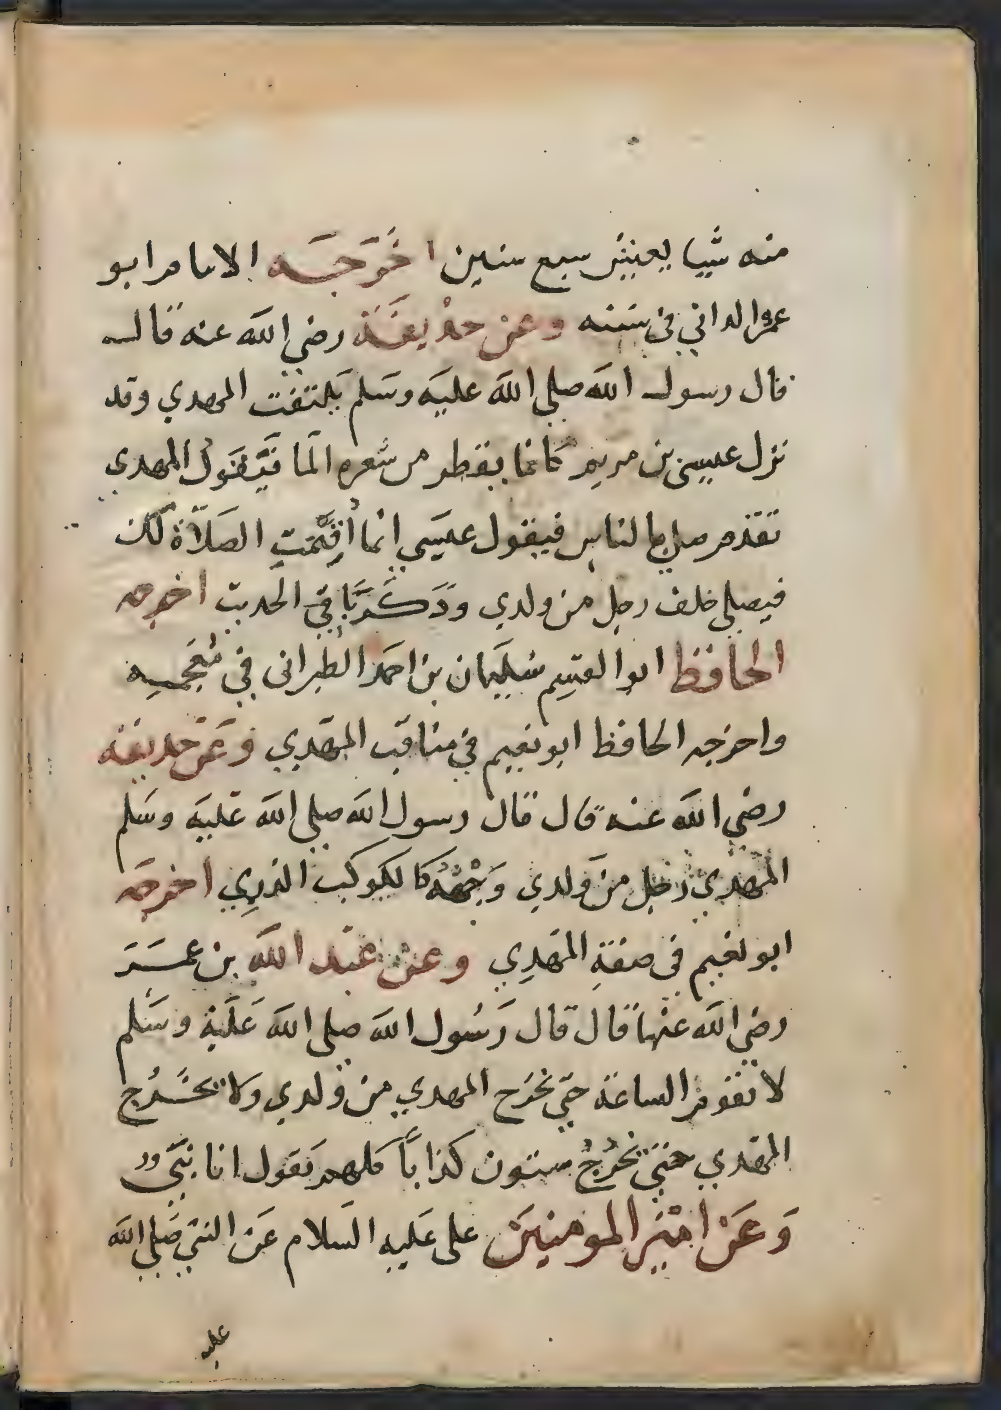 منه شيا يعيش سبع سنين اخرجه الامام ابو
عمرو الداني في سننه وعن حذيفة رضي الله عنه قال
قال رسول الله صلى الله عليه وسلم يلتفت المهدي وقد
نزل عيسى بن مريم كانما يقطر من شعره الما فيقول المهدي
تقدم صل بالناس فيقول عيسى انما اقيمت الصلاة لك
فيصلي خلف رجل من ولدي وذكر باقي الحديث اخرجه
الحافظ ابو القسم سليمان بن احمد الطبراني في معجمه
واخرجه الحافظ ابو نعيم في مناقب المهدي وعن حذيفة
رضي الله عنه قال قال رسول الله صلى الله عليه وسلم
المهدي رجل من ولدي وجهه كالكوكب الدري اخرجه
ابو نعيم في صفة المهدي وعن عبد الله بن عمر
رضي الله عنهما قال قال رسول الله صلى الله عليه وسلم
لا تقوم الساعة حتى يخرج المهدي من ولدي ولا يخرج
المهدي حتى يخرج ستون كذابا كلهم يقول انا نبي
وعن امير المومنين على عليه السلام عن النبي صلى الله
عليه